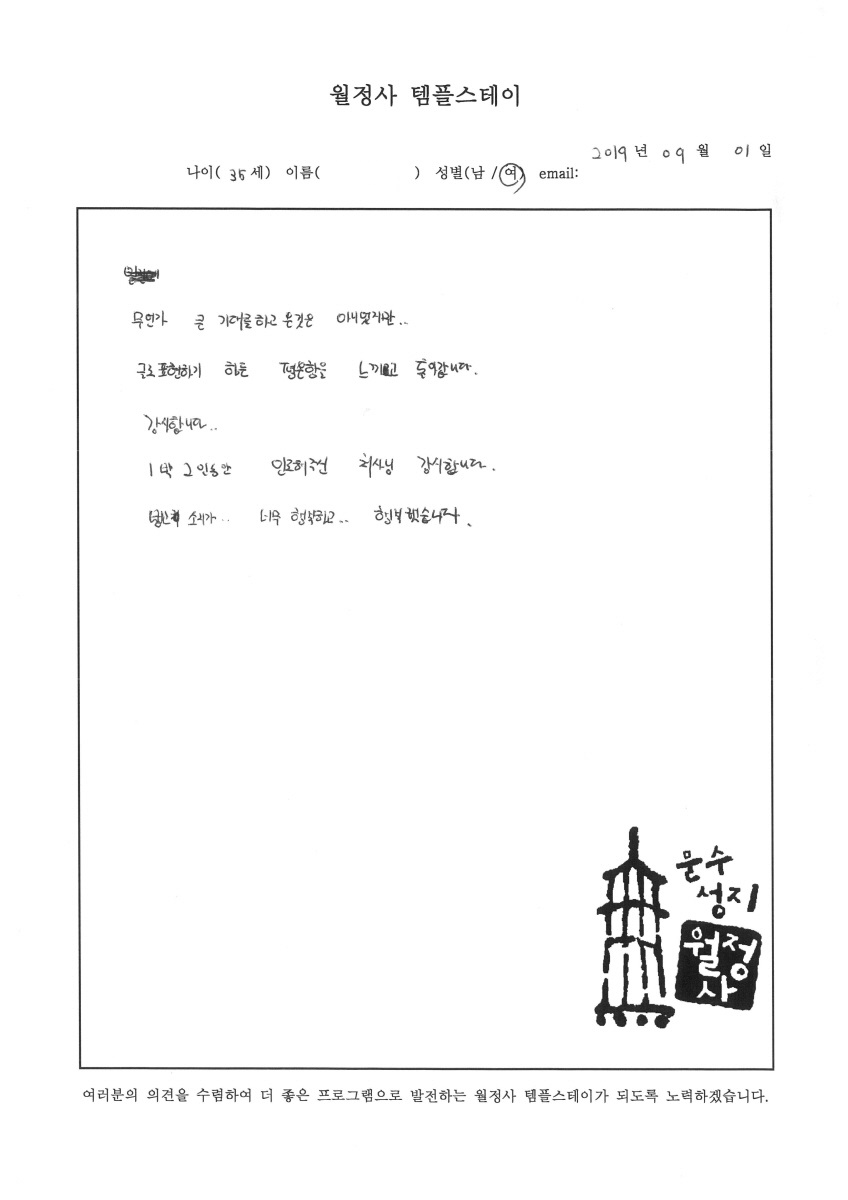 월정사 템플스테이
2019년 09월 01일
나이( 35세) 이름( ) 성별(남 / 여) email:
무언가 큰 기대를하고 온것은 아니였지만..
글로표현하기 힘든 평온함을 느끼고 돌아갑니다.
감사합니다..
1박 2일동안 인도해주신 처사님 감사합니다.
소리가.. 너무 행복하고.. 행복했습니다.
문수
성지
월정
사
여러분의 의견을 수렴하여 더 좋은 프로그램으로 발전하는 월정사 템플스테이가 되도록 노력하겠습니다.